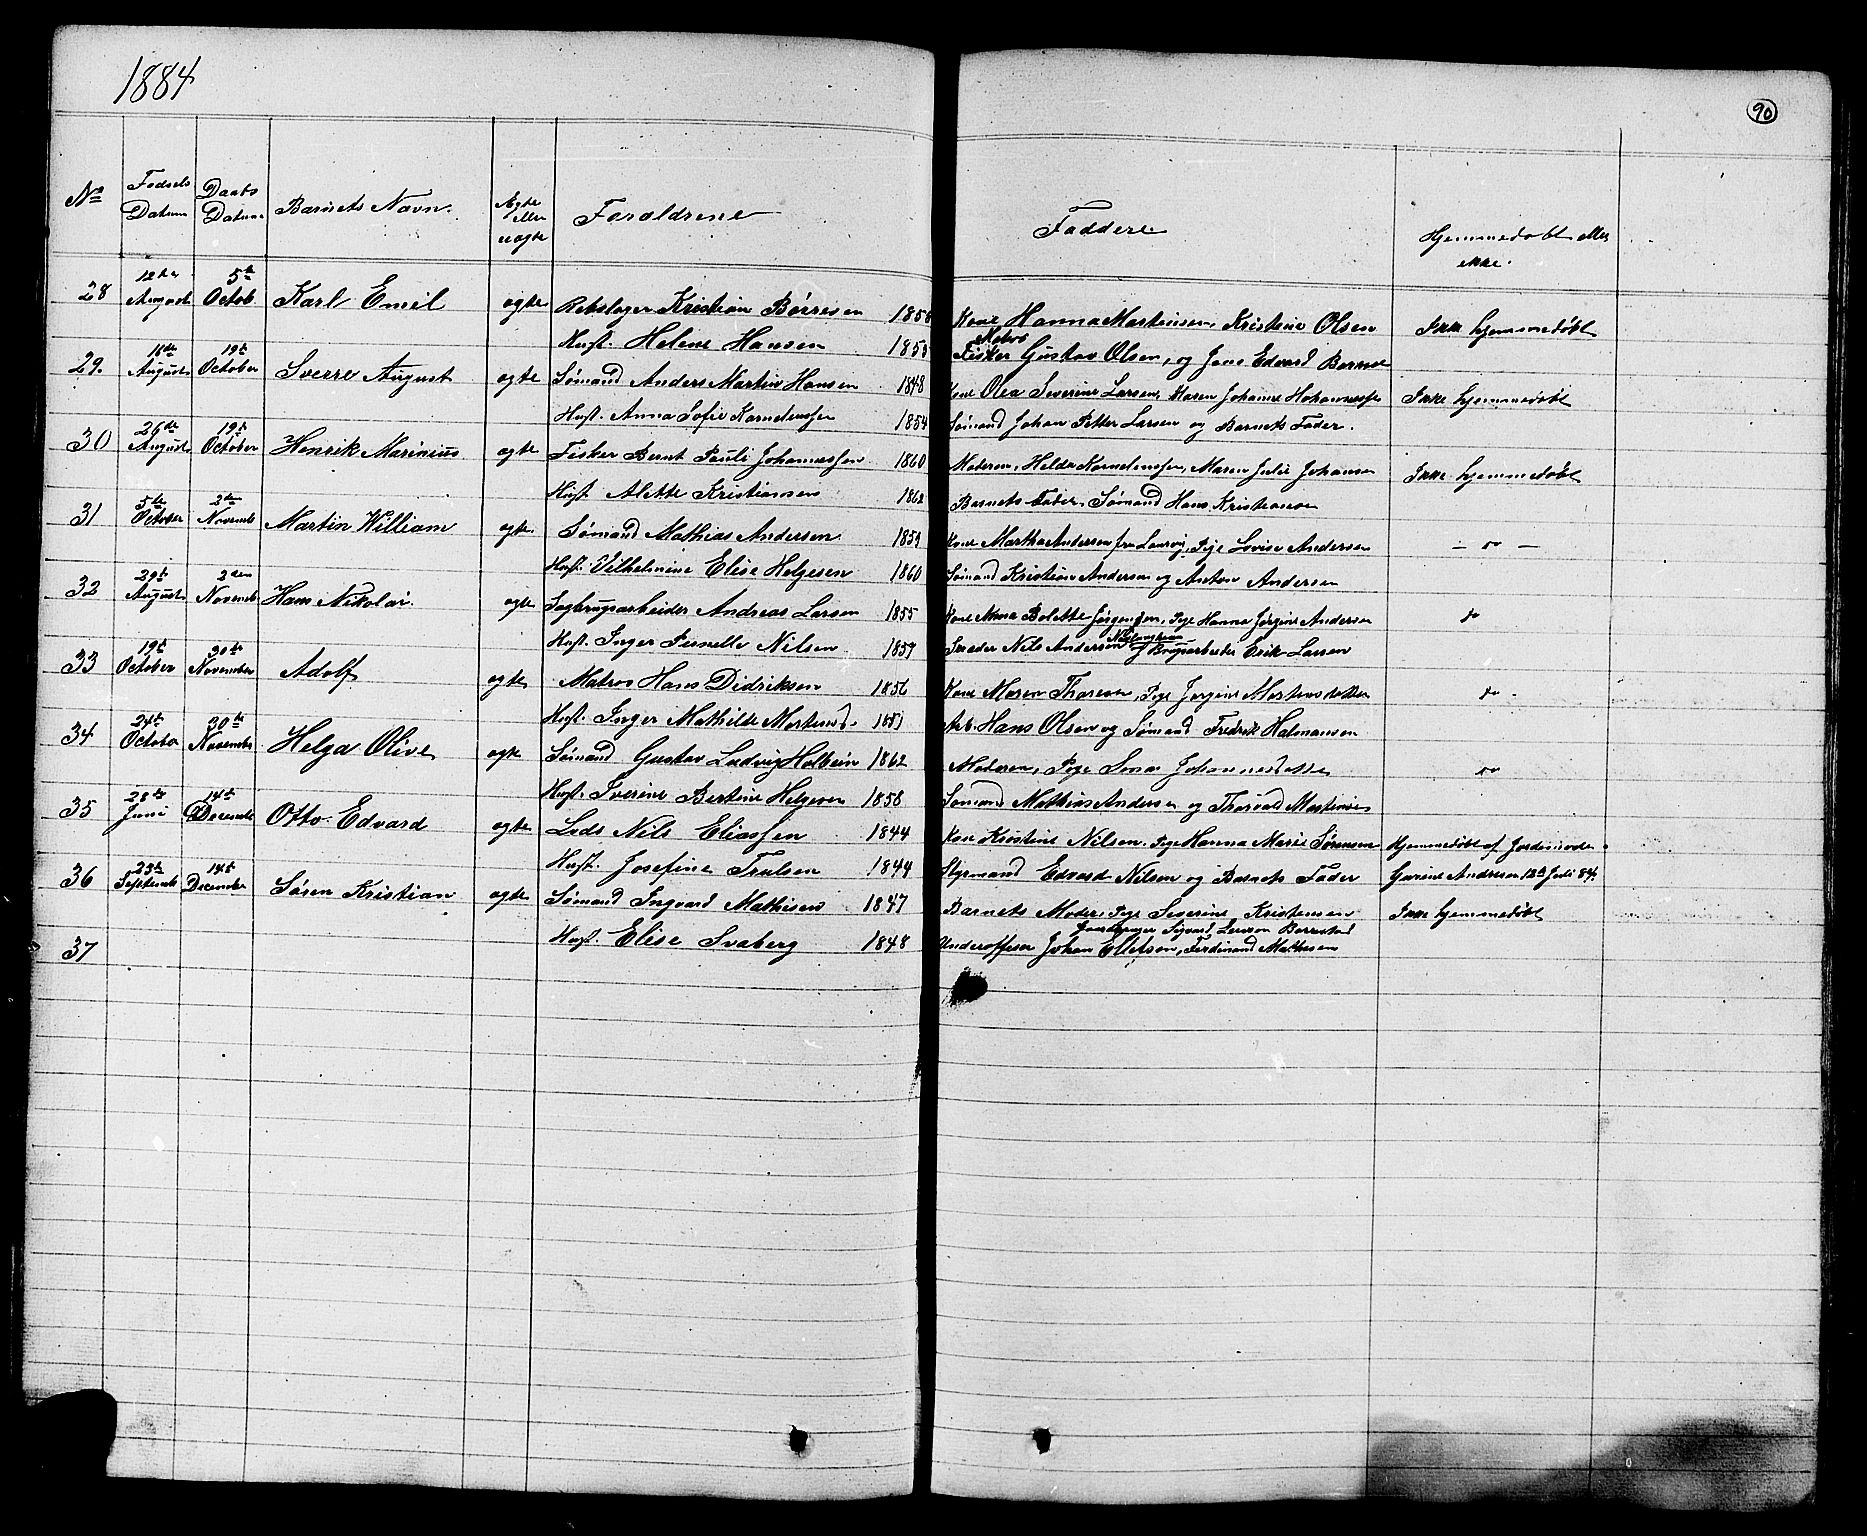 1884
90
No
Fødsels Datum
Daabs Datum
Barnets Navn.
Ægte eller uægte
Forældrene
Faddere
Hjemmedøbt eller ikke.
28 12te August 5te Octob. Karl Emil ægte Rebslager Kristian Børresen 1858 Kone Hanna Martinsen, Kristine Olsen Ikke hjemmedøbt
Hust. Helene Hansen 1858 Fisker Matros Gustav Olsen, og Jens Edvard
29. 16de August 19de October Sverre August ægte Sømand Anders Martin Hansen 1848 Kone Olea Severine Larsen, Maren Johanne Ikke hjemmedøbt
Hust. Anna Sofie Kornelussen 1854 Sømand Johan Petter Larsen og Barnets Fader.
30 26de August 19de October Henrik Marinius ægte Fisker Bernt Pauli Johannessen 1860 Moderen, Helda Kornelussen, Maren Julie Johansen Ikke hjemmedøbt
Hust. Alette Kristiansen 1862 Barnets Fader, Sømand Hans Kristiansen
31 5te October 2den Novemb Martin William ægte Sømand Mathias Andersen 1859 Kone Martha Andersen fra Laurvig, Pige Lovise Andersen — do —
Hust. Vilhelmine Elise Helgesen 1860 Sømand Kristian Andersen og Anton Andersen
32 29de August 2den Novemb Hans Nikolai. ægte Sagbrugsarbeider Andreas Larsen 1855 Kone Anna Bolette Jørgensen, Pige Hanna Jørgine Andersen do
Hust. Inger Pernelle Nilsen 1859 Nils Andersen og Brugsarbeider Erik Larsen
33 19de October 30te November Adolf ægte Matros Hans Didriksen 1856 Kone Maren Thoresen, Pige Jørgine Mortensdatter do
Hust. Inger Mathilde Mortensd. 1853 Arb. Hans Olsen og Sømand Fredrik Halvansen
34 24de October 30te November Helga Olive ægte Sømand Gustav Ludvig Holbein 1862 Moderen, Pige Johannesdatter do
Hust. Iverine Bertine Helgesen 1858 Sømand Mathias Andersen og Thorvald Martinsen
35 28de Juni 14de Decemb Otto Edvard ægte Lods Nils Eliassen 1844 Kone Kristine Nilsen. Pige Hanna Marie Sørensen Hjemmedøbt af Jordemoder
Hust. Josefine Trulsen 1844 Styrmand Edvard Nilsen og Barnets Fader Gurine Andersen 12te Juli 84.
36 23de Septemb 14de December Søren Kristian ægte Sømand Ingvard Mathisen 1847 Barnets Moder, Pige Severine Kristensen Ikke hjemmedøbt
Hust. Elise Svaberg 1848 Underofficer Johan Ellefsen, Ferdinand Mathisen
37